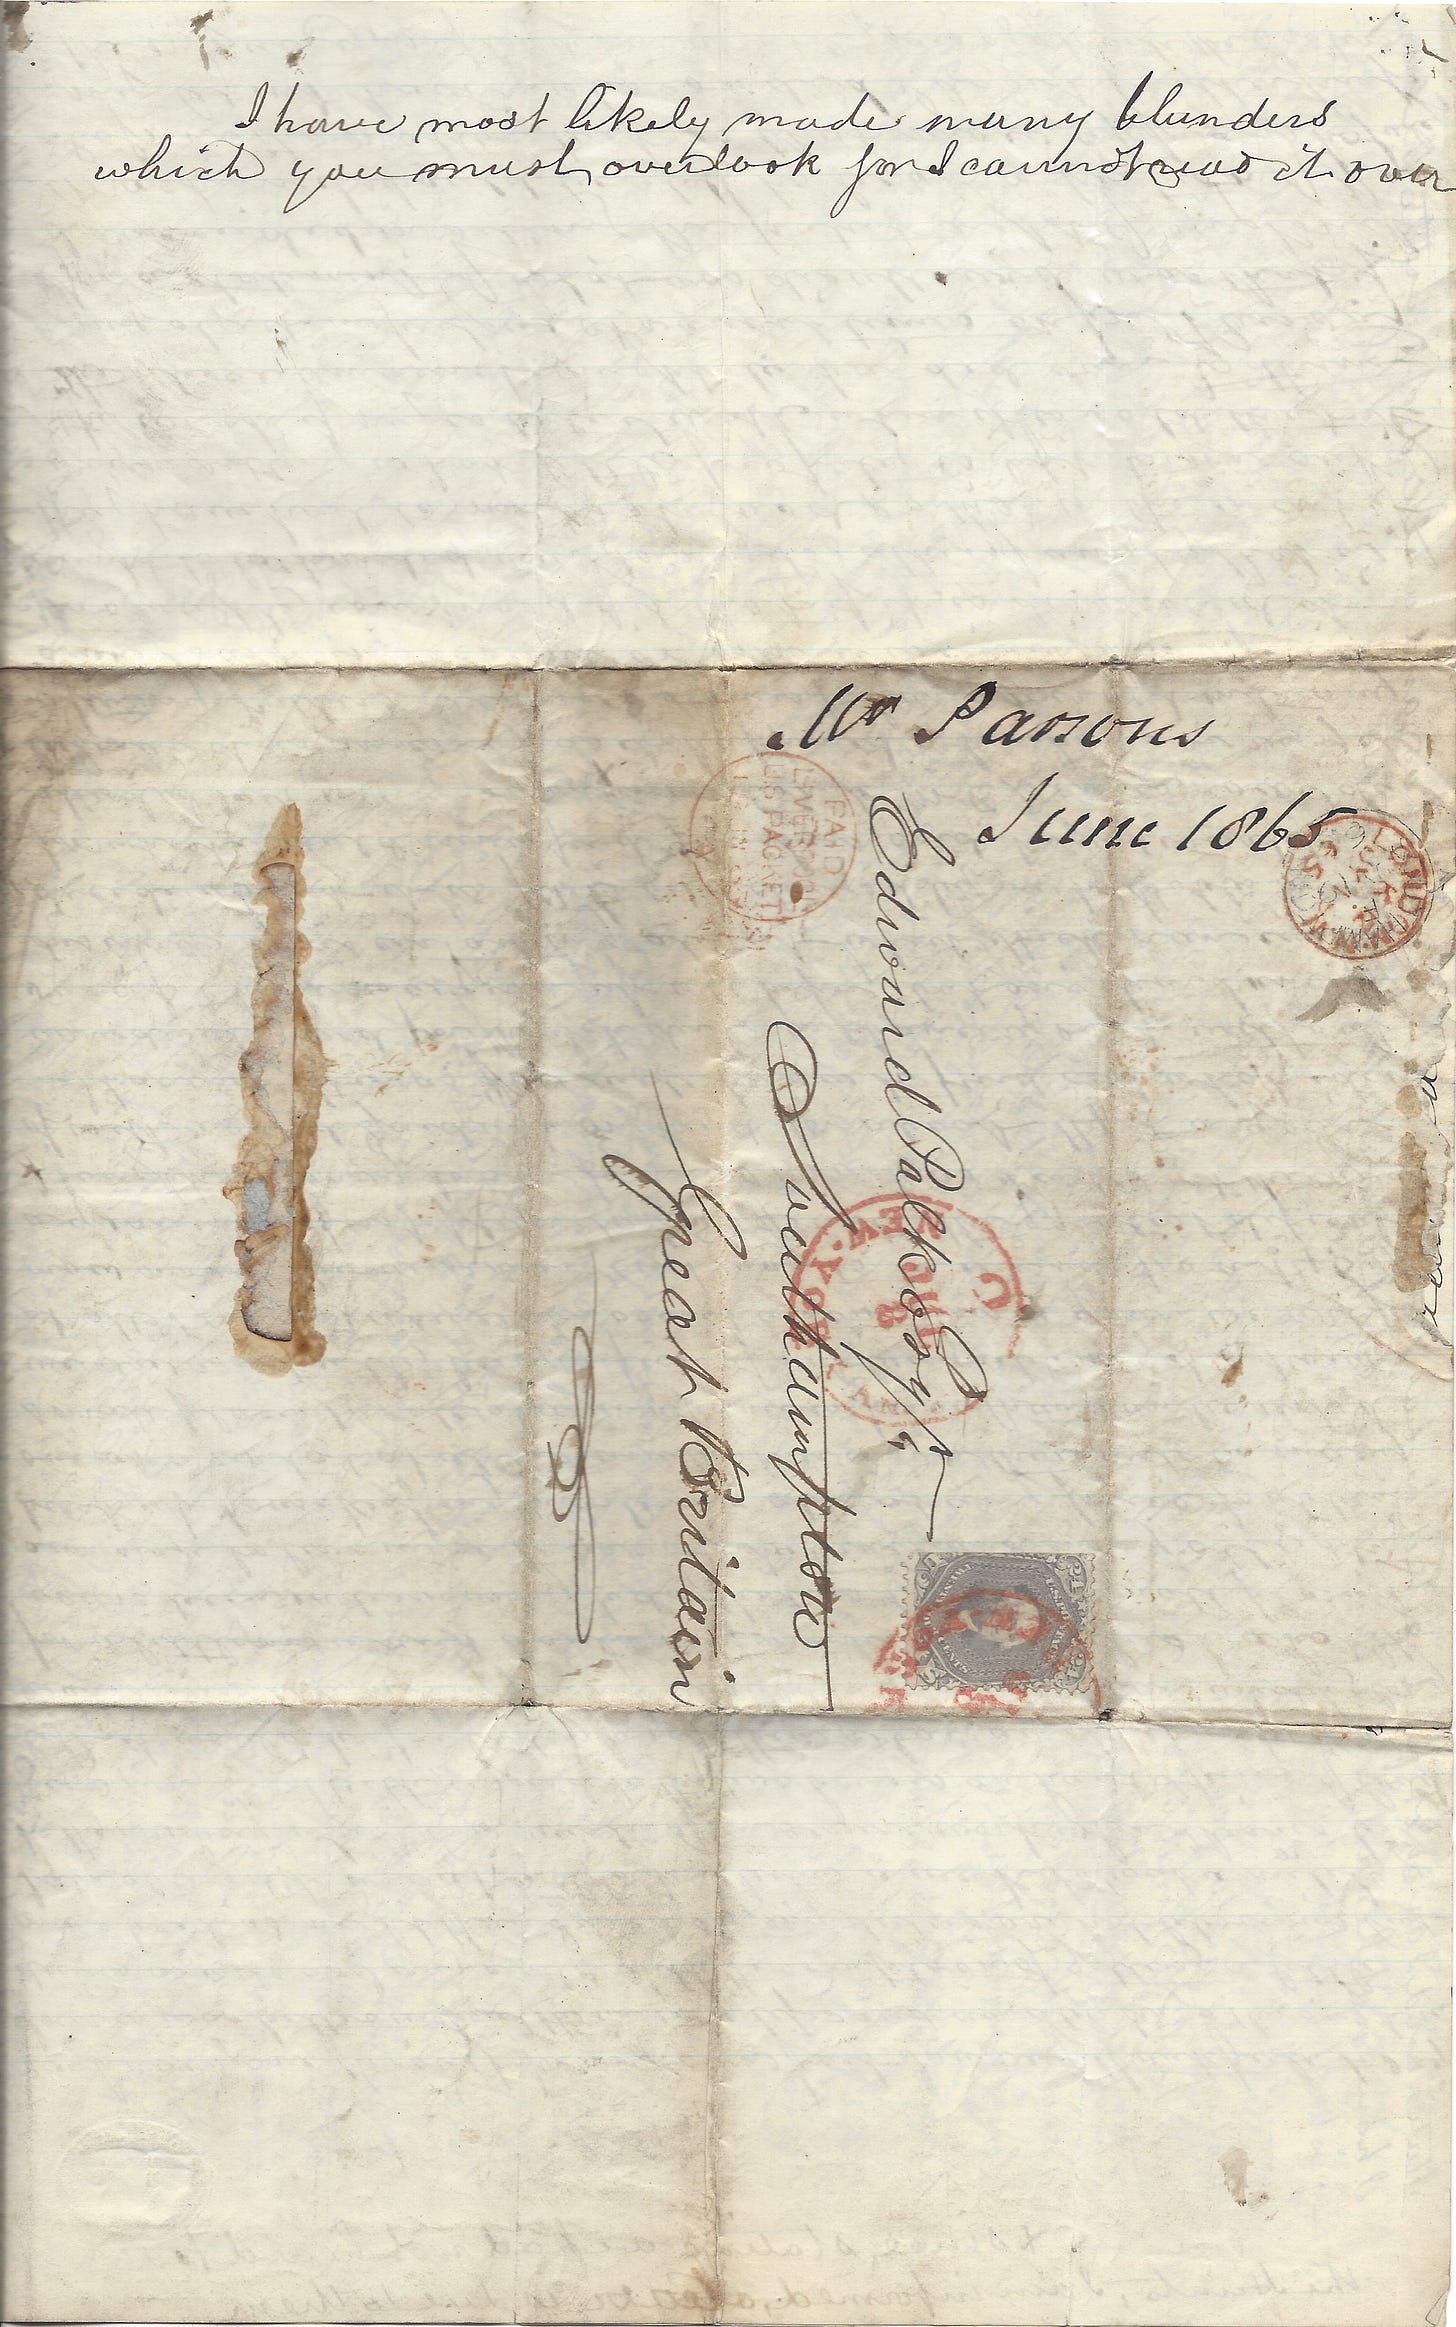 I have most likely made many blunders
which you must overlook for I cannot read it over
Mr Parsons
June 1865
Edward Palk Esqr
Southampton
Great Britain
PAID
LIVERPOOL
U.S. PACKET
NEW YORK
LONDON
CENTS